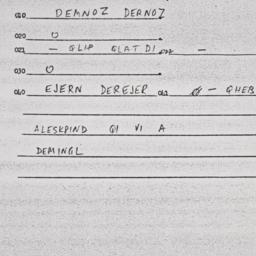 010 DEMNOZ DERNOZ
020 O
021 - GLIP GLAT DI -
030 O
040 EJERN DEREJER 042 - GHEB
ALESKPIND GI VI A
DEMINGL